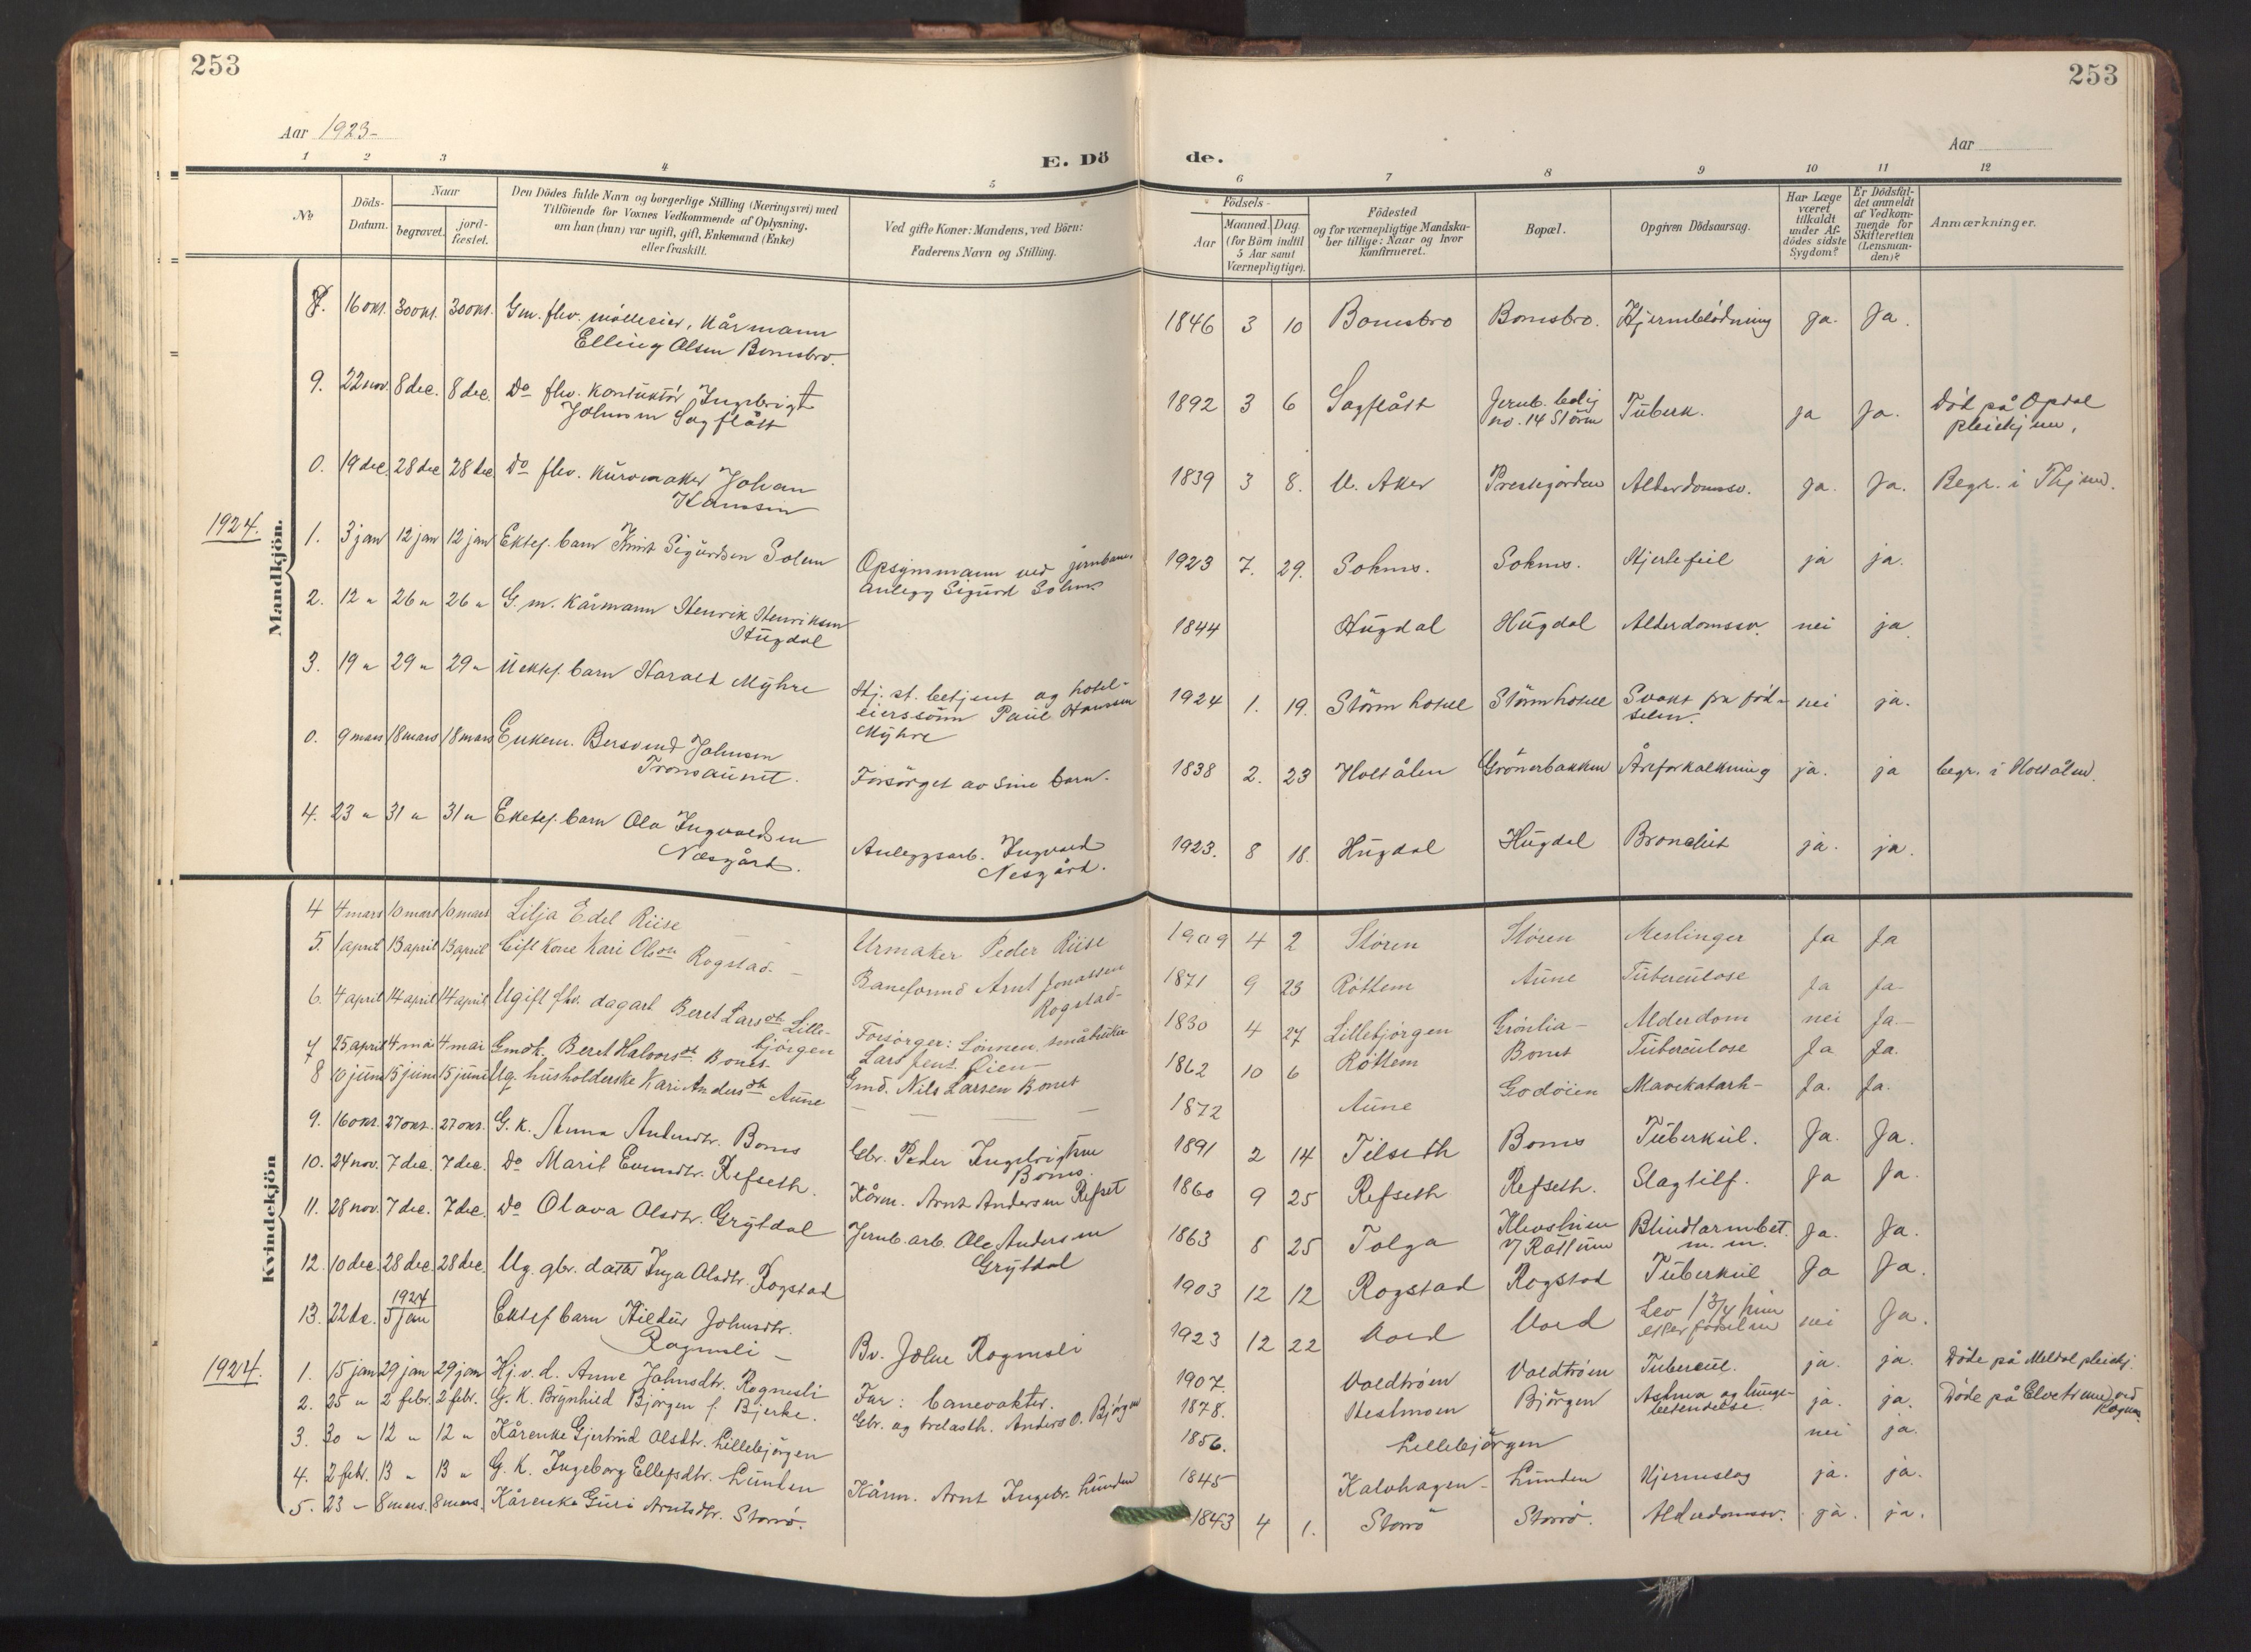 253
253
Aar 1923-
Aar
E. Dö de.
1 2 3 4 5 6 7 8 9 10 11 12
No
Döds-
Datum.
Naar
begravet.
jord-
fæstet.
Den Dödes fulde Navn og borgerlige Stilling (Næringsvei) med
Tilföiende for Voxnes Vedkommende af Oplysning,
om han (hun) var ugift, gift, Enkemand (Enke)
eller fraskilt.
Ved gifte Koner: Mandens, ved Börn:
Faderens Navn og Stilling.
Födsels-
Aar
Maaned. Dag.
(for Börn indtil
5 Aar samt
Værnepligtige).
Födested
og for værnepligtige Mandska-
ber tillige: Naar og hvor
konfirmeret.
Bopæl.
Opgiven Dödsaarsag.
Har Læge
været
tilkaldt
under Af-
dödes sidste
Sygdom?
Er Dödsfal-
det anmeldt
af Vedkom-
mende for
Skifteretten
(Lensman-
den)?
Anmærkninger.
Mandkjön.
8. 16 okt. 30 okt. 30 okt. Gm. fhv. mölleeier, kårmann
Elling Olsen Bonesbro. 1846 3 10 Bonesbro Bonesbro. Hjerneblödning ja. Ja.
9. 22 nov. 8 dec. 8 dec. Do fhv. konduktör Ingebrigt
Johnsen Sagflått 1892 3 6 Sagflått Jernb. bolig
no. 14 Stören Tuberk. ja Ja. Död på Opdal
pleiehjem.
0. 19 dec. 28 dec 28 dec Do fhv. kurvmaker Johan
Hansen 1839 3 8. V. Aker Prestegården Alderdomssv. ja. Ja. Begr. i Thjem.
1924.
1. 3 jan 12 jan 12 jan Ektef. barn Knut Sigurdsen Solem Opsynsmann ved jernbane-
anlegg Sigurd Solem 1923 7. 29. Soknes. Soknes. Hjertefeil ja ja.
2. 12 " 26 " 26 " G. m. kårmann Henrik Henriksen
Hugdal 1844 Hugdal Hugdal Alderdomssv. nei ja.
3. 19 " 29 " 29 " Uektef. barn Harald Myhre Hj. st. betjent og hotel-
eierssönn Paul Hansen
Myhre 1924 1. 19. Stören hotell Stören hotell Svakt fra föd-
selen. nei ja.
0. 9 mars 18 mars 18 mars Enkem. Bersvend Johnsen
Tronsaunet. Forsörget av sine barn. 1838 2. 23 Holtålen Grönerbakken Åreforkalkning ja. ja begr. i Holtålen.
4. 23 " 31 " 31 " Ektef. barn Ola Ingvaldsen
Næsgård. Anleggsarb. Ingvald
Nesgård. 1923. 8 18. Hugdal Hugdal Bronchit ja. ja.
Kvindekjön
4 4 mars 10 mars 10 mars Lilja Edel Riise Urmaker Peder Riise 1909 4 2 Stören Stören Meslinger Ja Ja
5. 1 april 13 april 13 april Gift kone Kari Olsdtr Rogstad. Baneformd Arnt Jonassen
Rogstad- 1871 9 23 Röttem Aune Tuberculose Ja Ja
6. 4 april 14 april 14 april Ugift fhv. dagarb Beret Larsdtr Lille-
björgen Forsörger: Sönnen, småbruker
Lars Jens. Öien 1830 4 27 Lillebjörgen Grönlia- Alderdom nei Ja.-
7 25 april 4 mai 4 mai Gmdk. Beret Halvorsdtr Bones Gmd. Nils Larsen Bones 1862 10 6 Röttem Bones Tuberculose Ja Ja.
8 10 juni 15 juni 15 juni Ug. husholderske Kari Andersdtr Aune 1872 Aune Godöien Mavekatarh- Ja. Ja.
9. 16 okt. 27 okt. 27 okt. G. k. Anna Andersdtr. Bones Gbr. Peder Ingebrigtsen
Bones. 1891 2 14 Tilseth Bones Tuberkul. Ja. Ja.
10. 24 nov. 7 dec. 7 dec. Do Marit Evensdtr. Refseth. Kårm. Arnt Andersen Refset 1860 9 25 Refseth Refseth. Slagtilf. Ja Ja.
11. 28 nov. 7 dec. 7 dec. Do Olava Olsdtr. Grytdal Jernb. arb. Ole Andersen
Grytdal 1863 8 25 Tolga Blindtarmbet.
m. m. Ja. Ja.
12. 10 dec. 28 dec. 28 dec. Ug. gbr. datter Inga Olsdtr. Rogstad 1903 12 12 Rogstad Rogstad Tuberkul Ja Ja.
13. 22 de. 1924
5 jan Ektef barn Hildur Johnsdtr.
Rognesli - Bv. John Rognesli 1923 12 22 Voed Voed Lev 1 3/4 time
efter födselen nei Ja.
1924.
1. 15 jan 29 jan 29 jan Hj. v. d. Anne Johnsdtr. Rognesli Far: banevokter. 1907. Voldtröen Voldtröen Tubercul. ja. ja. Döde på Meldal pleiehj.
2. 25 " 2 febr. 2 febr. G. K. Brynhild Bjørgen f. Bjerke. Gbr. og trelasth. Anders O. Björgen 1878. Hestmoen Björgen Astma og lunge-
betendelse. ja. ja. Döde på Elvetrund ved
Rognes
3. 30 " 12 " 12 " Kårenke Gjertrud Olsdtr. Lillebjörgen 1856. Lillebjörgen nei ja.
4. 2 febr. 13 " 13 " G. K. Ingeborg Ellefsdtr. Lunden Kårm. Arnt Ingebr. Lunden 1845 Kalvhagen- Lunden Hjerneslag ja. ja.
5. 23 - 8 mars. 8 mars. Kårenke Guri Arntsdtr. Storrö. 1843 4 1. Storrö Storrö. Alderdomssv. ja. ja.